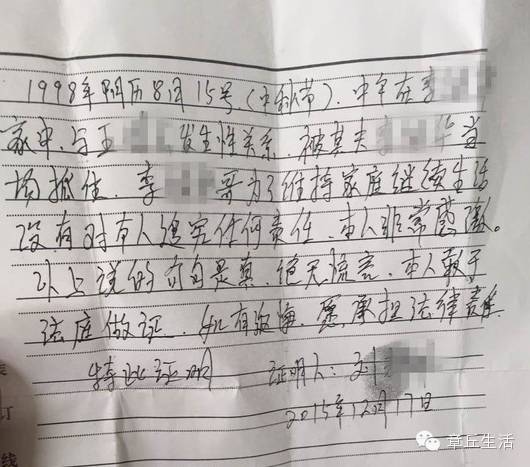 1998年阴历8月15号(中秋节).中午在李
家中.与王 发生性关系.被其夫李 华当
场抓住.李 哥为了维持家庭继续生活
没有对本人追究任何责任.本人非常感激。
以上说的句句是真.绝无流言.本人敢于
法庭做证.如有 悔.愿承担法律责任
特此证明 证明人:刘
2015年12月17日
订
线
章丘生活